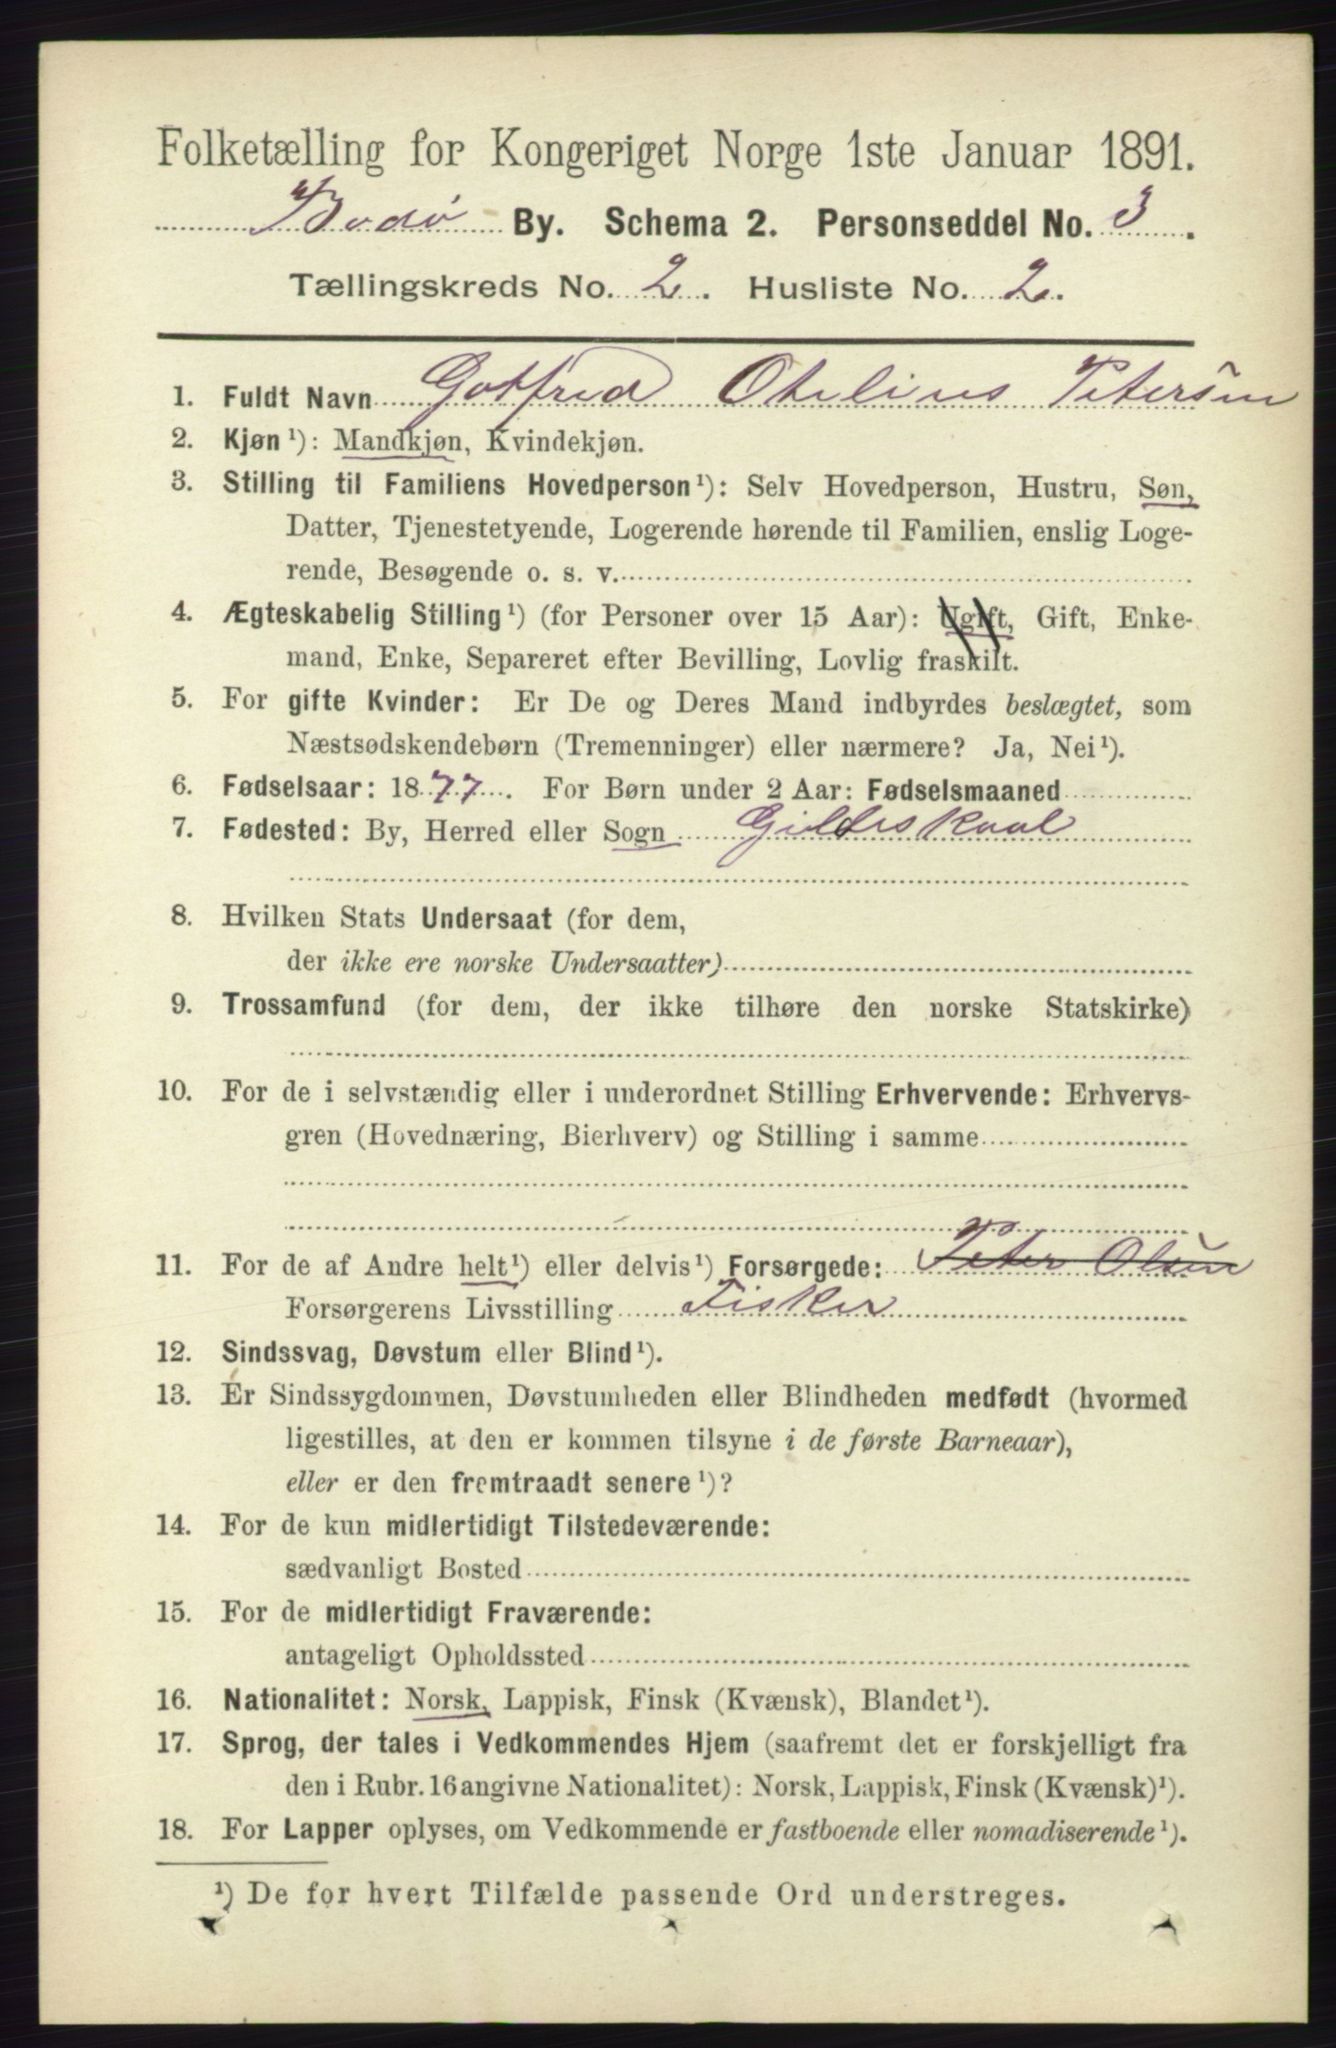 Folketælling for Kongeriget Norge 1ste Januar 1891.
Bodø By. Schema 2. Personseddel No. 3.
Tællingskreds No. 2. Husliste No. 2.
1. Fuldt Navn Gotfred Othelius Petersen
2. Kjøn¹): Mandkjøn, Kvindekjøn.
3. Stilling til Familiens Hovedperson¹): Selv Hovedperson, Hustru, Søn,
Datter, Tjenestetyende, Logerende hørende til Familien, enslig Loge-
rende, Besøgende o. s. v.
4. Ægteskabelig Stilling¹) (for Personer over 15 Aar): Ugift, Gift, Enke-
mand, Enke, Separeret efter Bevilling, Lovlig fraskilt.
5. For gifte Kvinder: Er De og Deres Mand indbyrdes beslægtet, som
Næstsødskendebørn (Tremenninger) eller nærmere? Ja, Nei¹).
6. Fødselsaar: 1877. For Børn under 2 Aar: Fødselsmaaned
7. Fødested: By, Herred eller Sogn Gildeskaal
8. Hvilken Stats Undersaat (for dem,
der ikke ere norske Undersaatter)
9. Trossamfund (for dem, der ikke tilhøre den norske Statskirke)
10. For de i selvstændig eller i underordnet Stilling Erhvervende: Erhvervs-
gren (Hovednæring, Bierhverv) og Stilling i samme
11. For de af Andre helt¹) eller delvis¹) Forsørgede: Peter Olsen
Forsørgerens Livsstilling Fisker
12. Sindssvag, Døvstum eller Blind¹).
13. Er Sindssygdommen, Døvstumheden eller Blindheden medfødt (hvormed
ligestilles, at den er kommen tilsyne i de første Barneaar),
eller er den fremtraadt senere¹)?
14. For de kun midlertidigt Tilstedeværende:
sædvanligt Bosted
15. For de midlertidigt Fraværende:
antageligt Opholdssted
16. Nationalitet: Norsk, Lappisk, Finsk (Kvænsk), Blandet¹).
17. Sprog, der tales i Vedkommendes Hjem (saafremt det er forskjelligt fra
den i Rubr. 16 angivne Nationalitet): Norsk, Lappisk, Finsk (Kvænsk)¹).
18. For Lapper oplyses, om Vedkommende er fastboende eller nomadiserende¹).
¹) De for hvert Tilfælde passende Ord understreges.